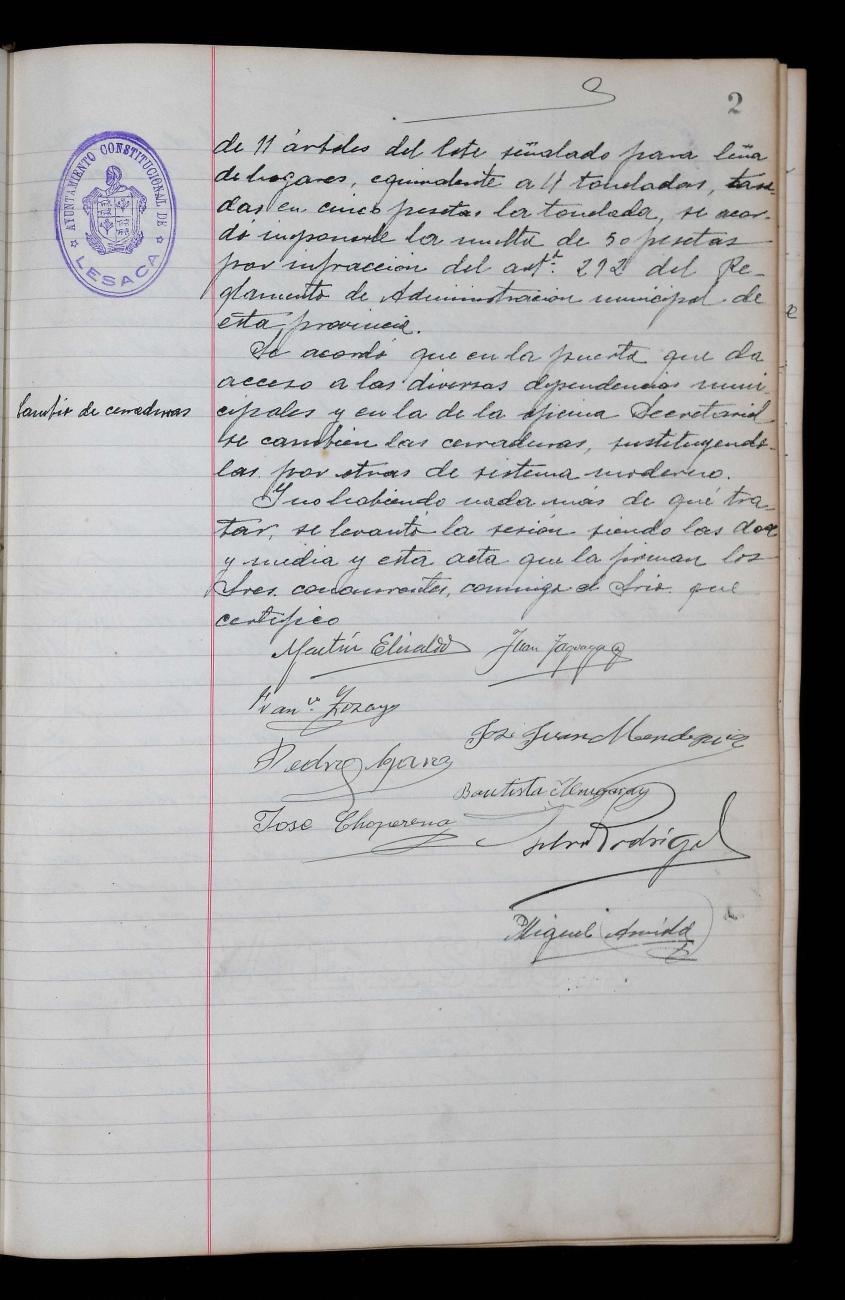 2
AYUNTAMIENTO CONSTITUCIONAL DE
LESACA
de 11 árboles del lote señalado para leña
de hogares, equivalente a 11 toneladas, tasa-
das en cinco pesetas la tonelada, se acor-
dó imponerle la multa de 50 pesetas
por infracción del artº. 292 del Re-
glamento de Administración municipal de
esta provincia.
Se acordó que en la puerta que da
acceso a las diversas dependencias muni-
Cambio de cerraduras
cipales y en la de la oficina Secretarial
se cambien las cerraduras, sustituyendo-
las por otras de sistema moderno.
Y no habiendo nada más de qué tra-
tar, se levantó la sesión siendo las doce
y media y esta acta que la firman los
Sres. concurrentes, conmigo el Srio. que
certifico
Martín Elizalde
Juan
Franco Zozaya
José Juan Mendaruiz
Pedro
Bautista
José Choperena
Rodríguez
Miguel